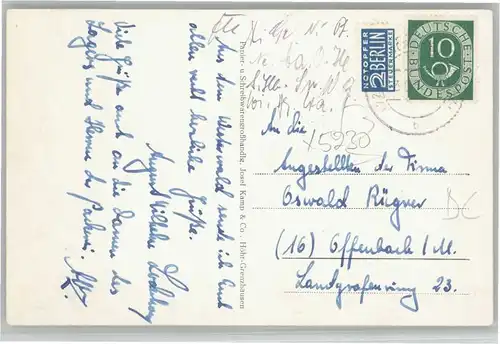 Aus dem Westerwald sende ich Euch
allen recht herzliche Grüße.
August Wilhelm
Viele Grüße auch an die Damen des
Lagers und Herren der Packerei.
Papier- u. Schreibwarengroßhandlg. Josef Kamp & Co., Höhr-Grenzhausen
NOTOPFER
2 BERLIN
STEUERMARKE
DEUTSCHE BUNDESPOST
10
An die
+5930
Angestellten der Firma
Oswald Rügner
(16) Offenbach / M.
Landgrafenring 23.
DC